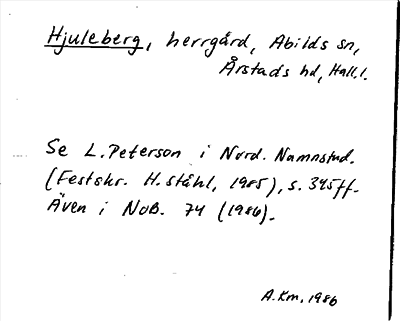 Hjuleberg, herrgård, Abilds sn,
Årstads hd, Hall.l.
Se L. Peterson i Nord. Namnstud.
(Festskr. H. Ståhl, 1985), s. 345ff.
Även i NoB. 74 (1986).
A.Km. 1986